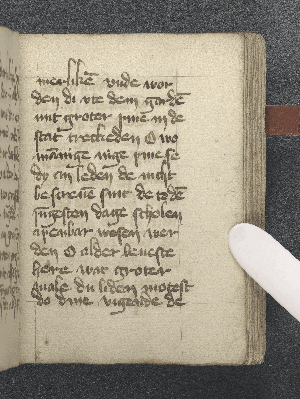 merliken vnde wor
den di vte dem garde
mit groter pine in de
stat trecketen O wo
mānige nige pine se
dy an leden de nicht
bescreuē sint de to dē
iungesten dage scholen
apenbar wesen wer
den O alder leueste
here wat groter
quale du liden motest
do dine vigende de